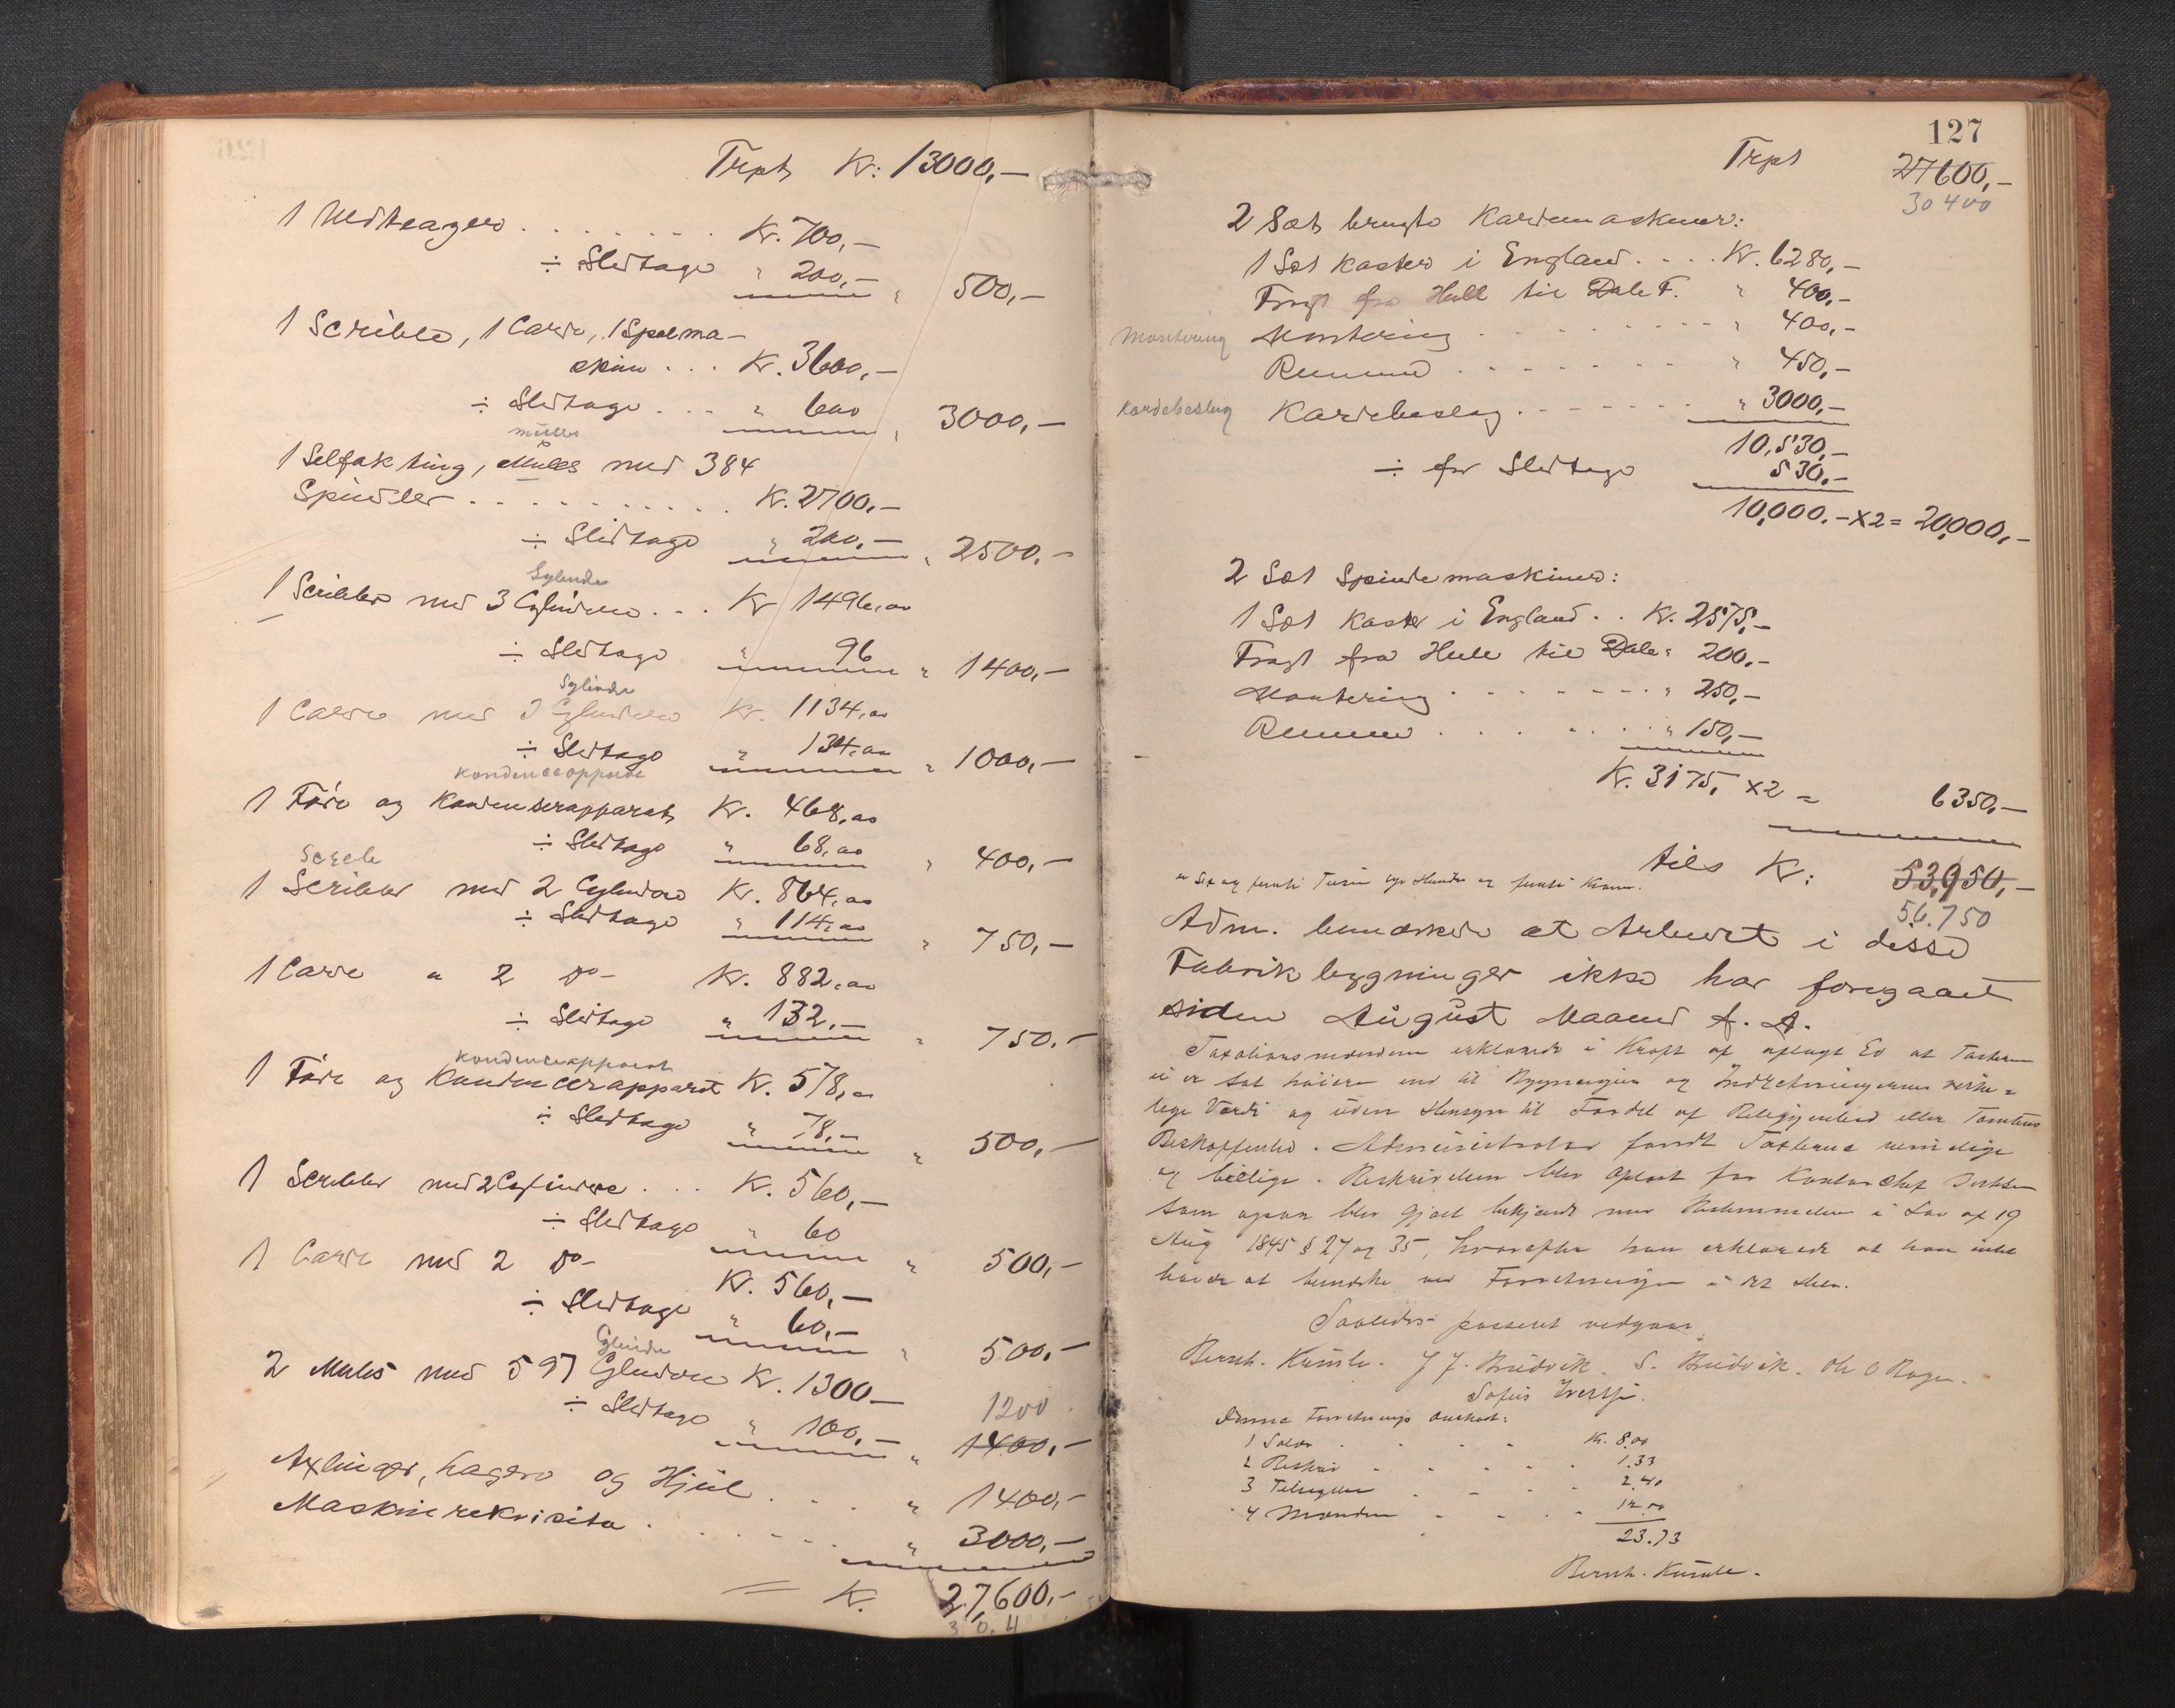 Trpt Kr: 13000,-
1 Nedtager . . . . . . . Kr. 700,-
÷ Slidtage " 200,- " 500,-
1 Scribler, 1 Carde, 1 Spolma-
skine . . . Kr. 3600,-
÷ Slidtage . . . " 600 " 3000,-
mules
1 Selfakting, Mules med 384
Spindler . . . . . . . . . . Kr. 2700,-
÷ Slidtage " 200,- " 2500,-
Cylindre
1 Scribler med 3 Cylindere . . . Kr 1496,00
÷ Slidtage " 96 " 1400,-
Cylindre
1 Carde med 3 Cylindere Kr. 1134,00
÷ Slidtage " 134,00 " 1000,-
Kondenseapparat
1 Føre og Kondenserapparat Kr. 468,00
÷ Slidtage " 68,00 " 400,-
1 Scribler med 2 Cylindere Kr. 864,00
÷ Slidtage " 114,00 " 750,-
1 Carde " 2 do- Kr. 882,00
÷ Slidtage " 132,- " 750,-
Kondenseapparat
1 Føre og Kondencerapparat Kr. 578,00
÷ Slidtage " 78,- " 500,-
1 Scribler med 2 Cylindere . . . Kr. 560,-
÷ Slidtage " 60 " 500,-
1 Carde med 2 do-
Kr. 560,-
÷ Slidtage " 60,- " 500,-
Cylindre
2 Mules med 597 Cylindere Kr. 1300-
1200
÷ Slidtage " 100,- " 1400,-
Axlinger, Lagere og Hjul . . . . " 1400,-
Maskinrekvisita . . . . . . " 3000,-
= Kr. 27,600,-
30.4
127
Trpt 27600,-
30400
2 Sæt brugte Kardemaskiner:
1 Sæt koster i England . . . . Kr. 6280,-
Fragt fra Hull til Dale F. " 400,-
Montering Montering . . . . . . . . " 400,-
Remmer . . . . . . . " 450,-
Kardebeslag Kardebeslag . . . . . . . " 3000,-
10,530,-
÷ for Slidtage 530,-
10,000,- x2 = 20,000,-
2 Sæt Spindemaskiner:
1 Sæt koster i England . . Kr. 2575,-
Fragt fra Hull til Dale " 200,-
Montering . . . . . . . " 250,-
Remmer . . . . . . " 150,-
Kr. 3175, x2 = 6350,-
tils Kr: 53,950,-
56.750
Adm. bemærkede at Arbeidet i disse
Fabrikbygninger ikke har foregaaet
siden August Maaned f. A.
Taxationsmændene erklærede i Kraft af aflagt Ed at Taxterne
ei er sat høiere end til Bygningens og Indretningernes virke=
lige Værdi og uden Hensyn til Fordel af Beliggenhed eller Tomtens
Beskaffenhed. Administrator fandt Taxterne rimelige
og billige. Beskrivelsen blev oplæst for Kontorchef
som ogsaa blev gjort bekjendt med Bestemmelsen i Lov af 19
Aug 1845 § 27 og 35, hvorefter han erklærede at han intet
havde at bemærke ved Forretningen i det Hele.
Saaledes passeret vedgaaes
Bernh. J J. Bredvik. S. Bredvik. Ole O
Sofus
Denne Forretnings Omkost:
1 Salær . . . . Kr. 8.00
2 Beskriv . . . . 1.33
3 . . . . 2.40
4 Mændene . . . . 12.00
23.73
Bernh.